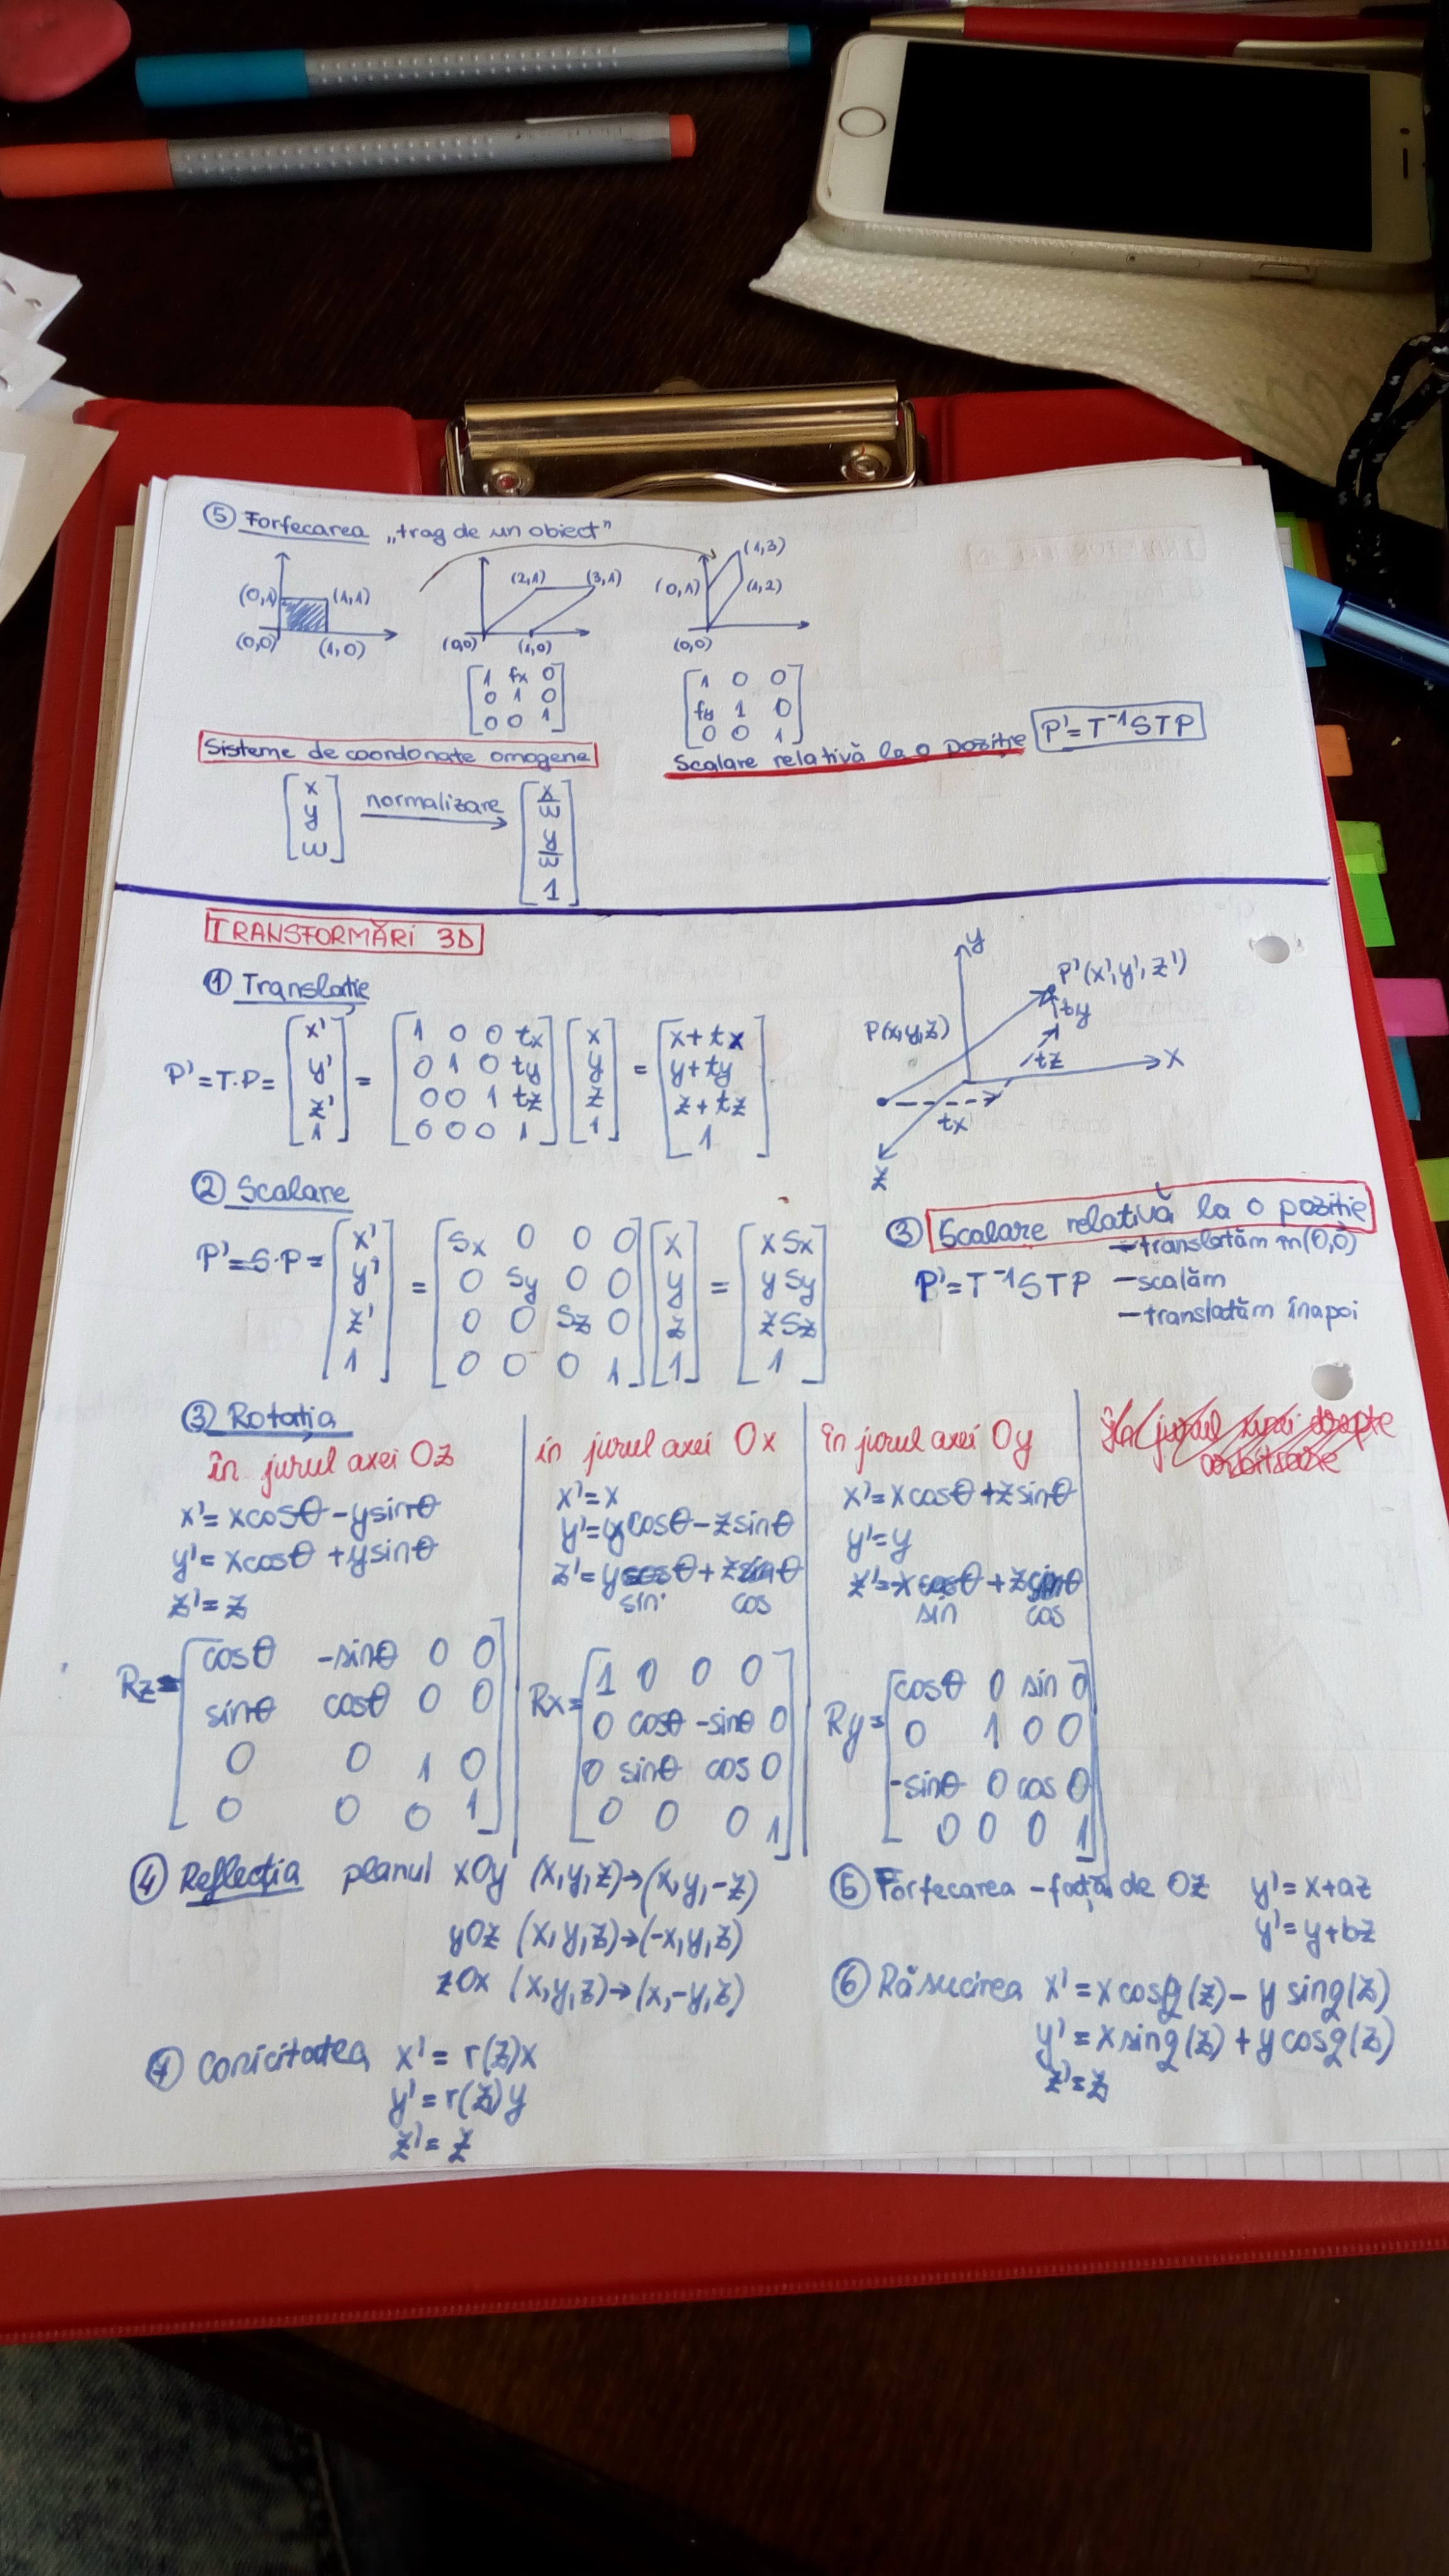 ⑤ Forfecarea „trag de un obiect"
(0,1) (1,1) (0,0) (1,0)
(2,1) (3,1) (0,0) (1,0)
(1,3) (0,1) (1,2) (0,0)
[1 fx 0
0 1 0
0 0 1]
[1 0 0
fy 1 0
0 0 1]
Sisteme de coordonate omogene
Scalare relativă la o poziție P'=T⁻¹STP
[x
y
w]
normalizare
[x/w
y/w
1]
TRANSFORMĂRI 3D
① Translație
P'=T·P= [x' y' z' 1] = [1 0 0 tx
0 1 0 ty
0 0 1 tz
0 0 0 1] [x y z 1] = [x+tx
y+ty
z+tz
1]
y
P'(x',y',z')
ty
P(x,y,z)
tz
x
tx
z
② Scalare
P'=S·P= [x' y' z' 1] = [Sx 0 0 0
0 Sy 0 0
0 0 Sz 0
0 0 0 1] [x y z 1] = [xSx
ySy
zSz
1]
③ Scalare relativă la o poziție
-translatăm in (0,0)
P'=T⁻¹STP -scalăm
-translatăm înapoi
③ Rotația
în jurul axei Oz
x'=xcosθ-ysinθ
y'=xcosθ+ysinθ
z'=z
Rz= [cosθ -sinθ 0 0
sinθ cosθ 0 0
0 0 1 0
0 0 0 1]
in jurul axei Ox
x'=x
y'=ycosθ-zsinθ
z'=ycosθ+zsinθ
sin cos
Rx= [1 0 0 0
0 cosθ -sinθ 0
0 sinθ cos 0
0 0 0 1]
în jurul axei Oy
x'=xcosθ+zsinθ
y'=y
z'=-xcosθ+zsinθ
sin cos
Ry= [cosθ 0 sin 0
0 1 0 0
-sinθ 0 cos 0
0 0 0 1]
În jurul unei drepte
arbitrare
④ Reflecția planul xOy (x,y,z)→(x,y,-z)
yOz (x,y,z)→(-x,y,z)
zOx (x,y,z)→(x,-y,z)
⑤ Forfecarea -față de Oz y'=x+az
y'=y+bz
⑥ Răsucirea x'=xcosg(z)-y sing(z)
y'=xsing(z)+ycosg(z)
z'=z
⑦ Conicitatea x'=r(z)x
y'=r(z)y
z'=z